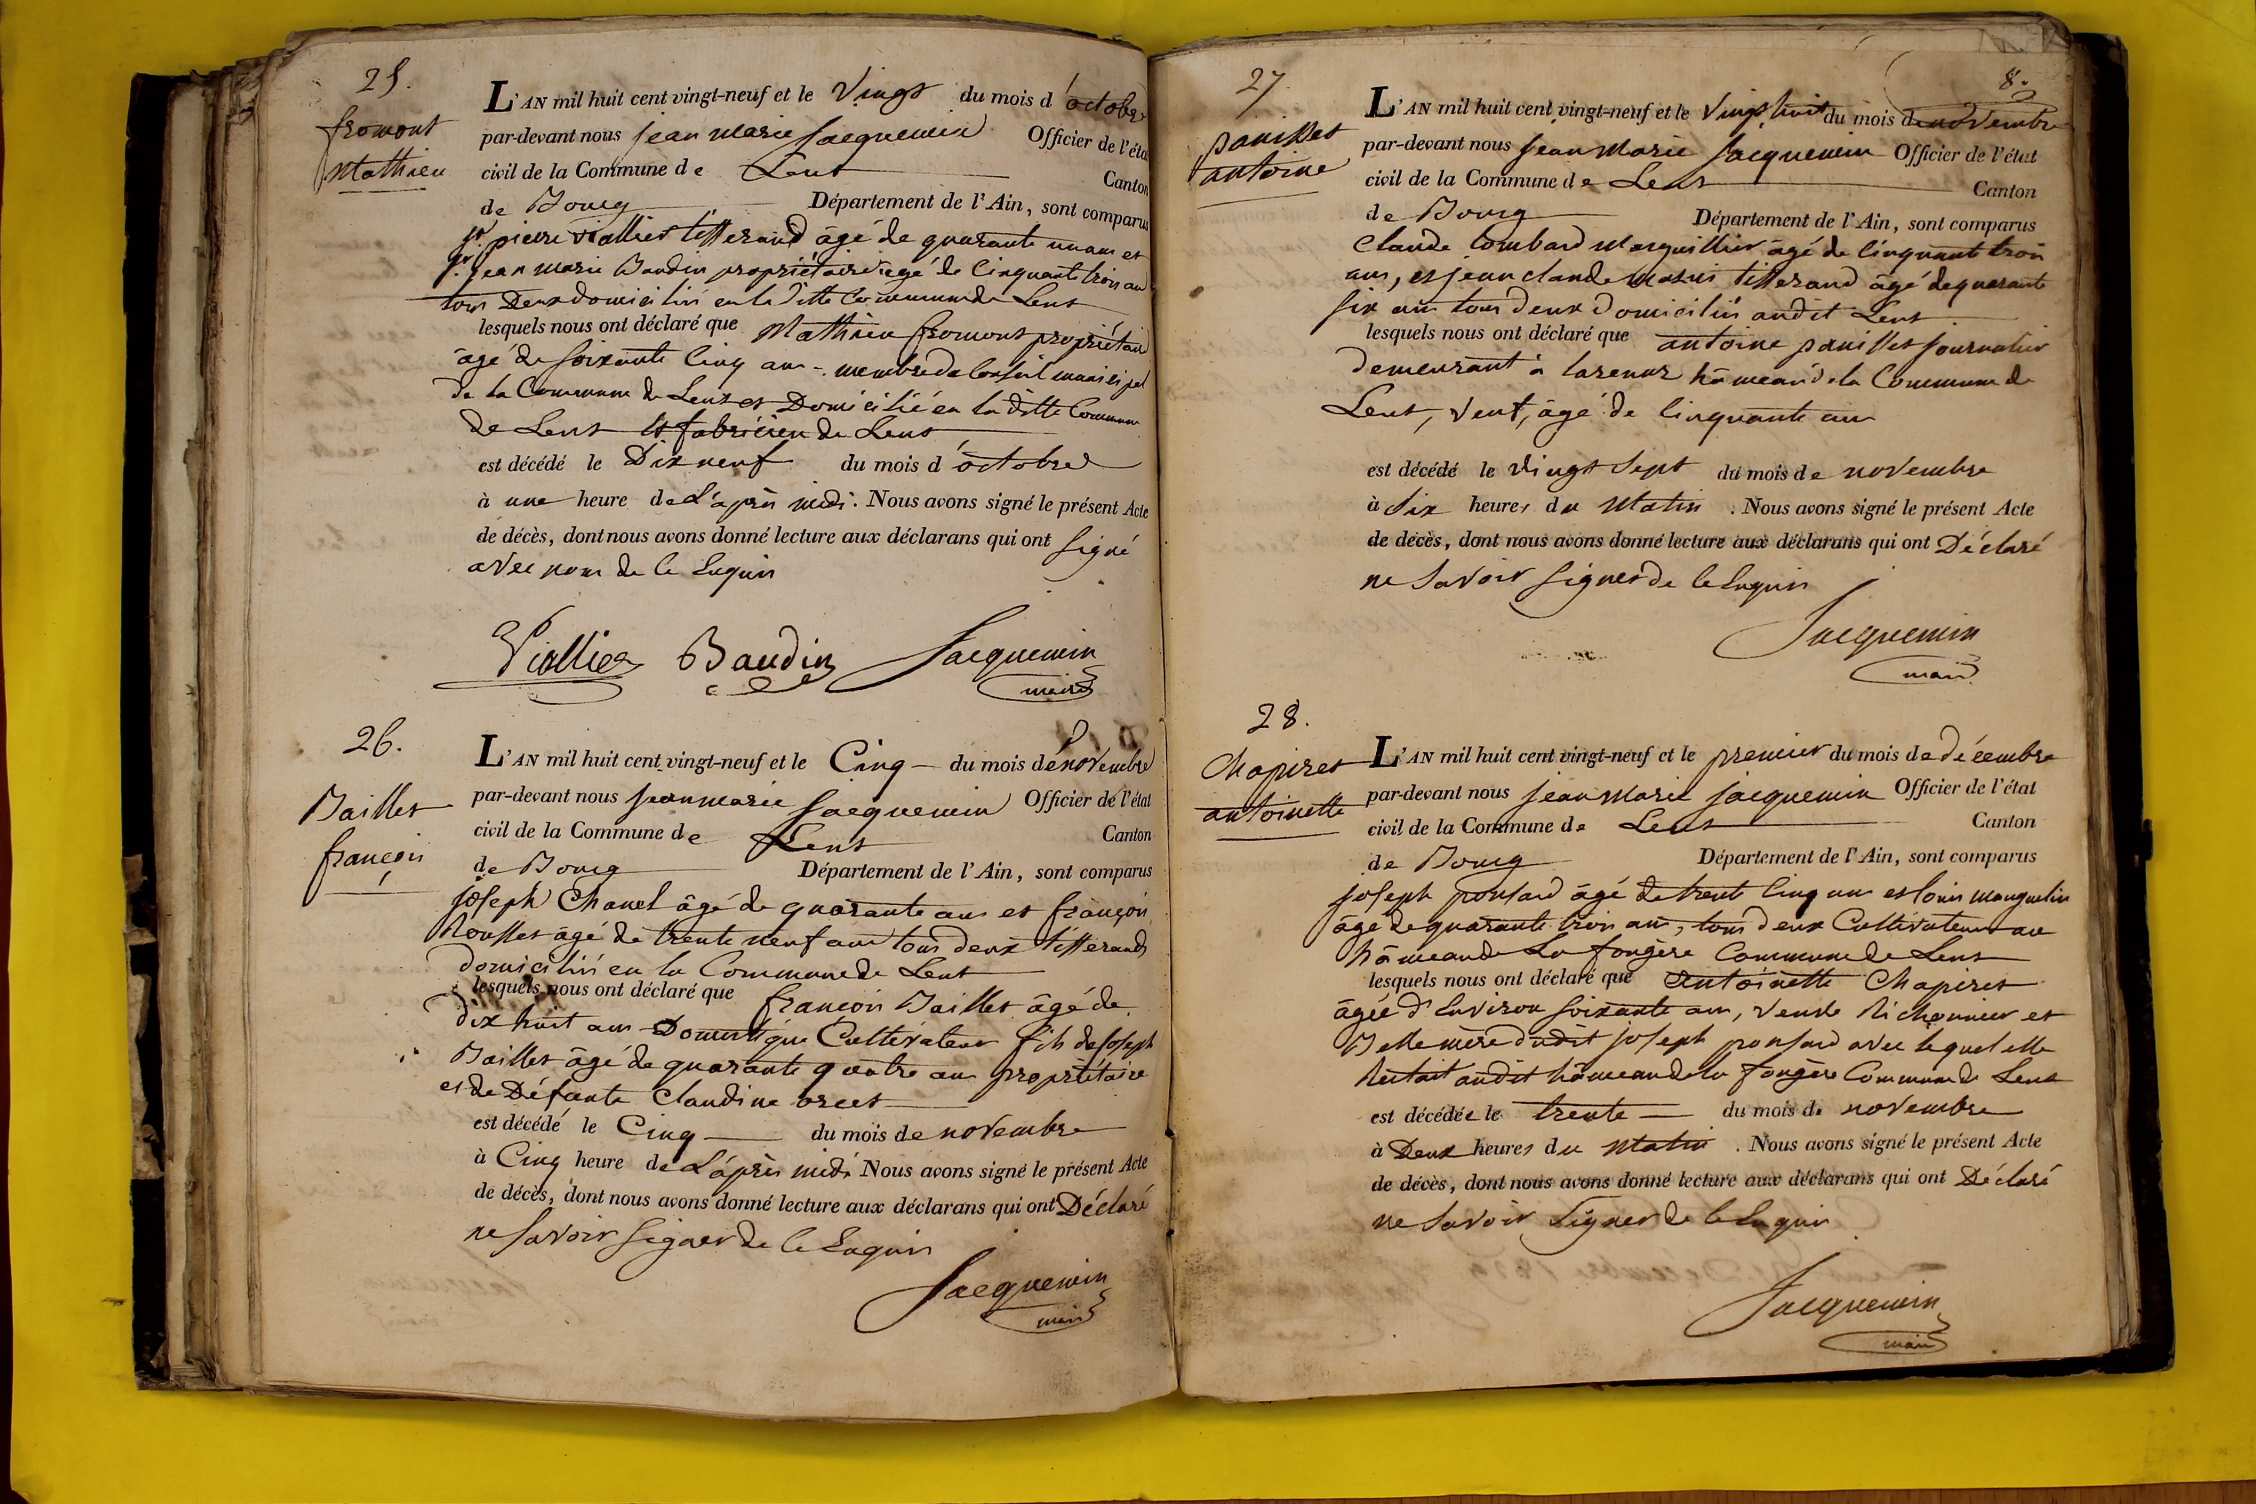 25.
fromont
Mathieu
L'AN mil huit cent vingt-neuf et le Vingt du mois d'octobre
par-devant nous jean marie Jacquemin Officier de l'état
civil de la Commune de Lent Canton
de Bourg Département de l'Ain, sont comparus
Sr. pierre Viallier tisserand âgé de quarante un ans et
Sr. jean marie Baudin propriétaire âgé de Cinquante trois ans
tous Deux domiciliés en la ditte Commune de Lent
lesquels nous ont déclaré que Mathieu fromont propriétaire
âgé de soixante Cinq ans - membre de Conseil municipal
de la Commune de Lent et Domicilié en la ditte Commune
de Lent et fabricien de Lent
est décédé le Dix neuf du mois d'octobre
à une heure de L'après midi. Nous avons signé le présent Acte
de décès, dont nous avons donné lecture aux déclarans qui ont signé
avec nous de ce Enquis
Viallier Baudin Jacquemin
maire
26.
Baillet
françois
L'AN mil huit cent vingt-neuf et le Cinq du mois de novembre
par-devant nous jean marie Jacquemin Officier de l'état
civil de la Commune de Lent Canton
de Bourg Département de l'Ain, sont comparus
joseph Chanel âgé de quarante ans et françois
Rousset âgé de trente neuf ans tous deux tisserands
domiciliés en la Commune de Lent
lesquels nous ont déclaré que françois Baillet âgé de
dix huit ans Domestique Cultivateur fils de Joseph
Baillet âgé de quarante quatre ans propriétaire
et de Défunte Claudine
est décédé le Cinq du mois de novembre
à Cinq heure de L'après midi Nous avons signé le présent Acte
de décès, dont nous avons donné lecture aux déclarans qui ont Déclaré
ne Savoir Signer de ce Enquis
Jacquemin
maire
8.
27
panisset
antoine
L'AN mil huit cent vingt-neuf et le Vingt huit du mois de novembre
par-devant nous jean Marie Jacquemin Officier de l'état
civil de la Commune de Lent Canton
de Bourg Département de l'Ain, sont comparus
Claude lombard Marguillier âgé de Cinquante trois
ans, et jean claude tisserand âgé de quarante
six ans tous deux domiciliés audit Lent
lesquels nous ont déclaré que antoine panisset journalier
demeurant à hâmeau de la Commune de
Lent, veuf, âgé de Cinquante ans
est décédé le vingt Sept du mois de novembre
à Six heures du Matin. Nous avons signé le présent Acte
de décès, dont nous avons donné lecture aux déclarans qui ont Déclaré
ne Savoir Signer de ce Enquis
Jacquemin
maire
28.
Chapiret
antoinette
L'AN mil huit cent vingt-neuf et le premier du mois de décembre
par-devant nous jean Marie Jacquemin Officier de l'état
civil de la Commune de Lent Canton
de Bourg Département de l'Ain, sont comparus
joseph ponsard âgé de trente Cinq ans et louis manguelin
âgé de quarante trois ans, tous deux Cultivateurs au
hâmeau de La fougère Commune de Lent
lesquels nous ont déclaré que antoinette Chapiret
âgée d'Environ soixante ans, veuve Richonnier et
Belle mère dudit joseph ponsard avec lequel elle
Restait audit hâmeau de la fougère Commune de Lent
est décédée le trente du mois de novembre
à Deux heures du Matin. Nous avons signé le présent Acte
de décès, dont nous avons donné lecture aux déclarans qui ont Déclaré
ne Savoir Signer de ce Enquis
Jacquemin
maire